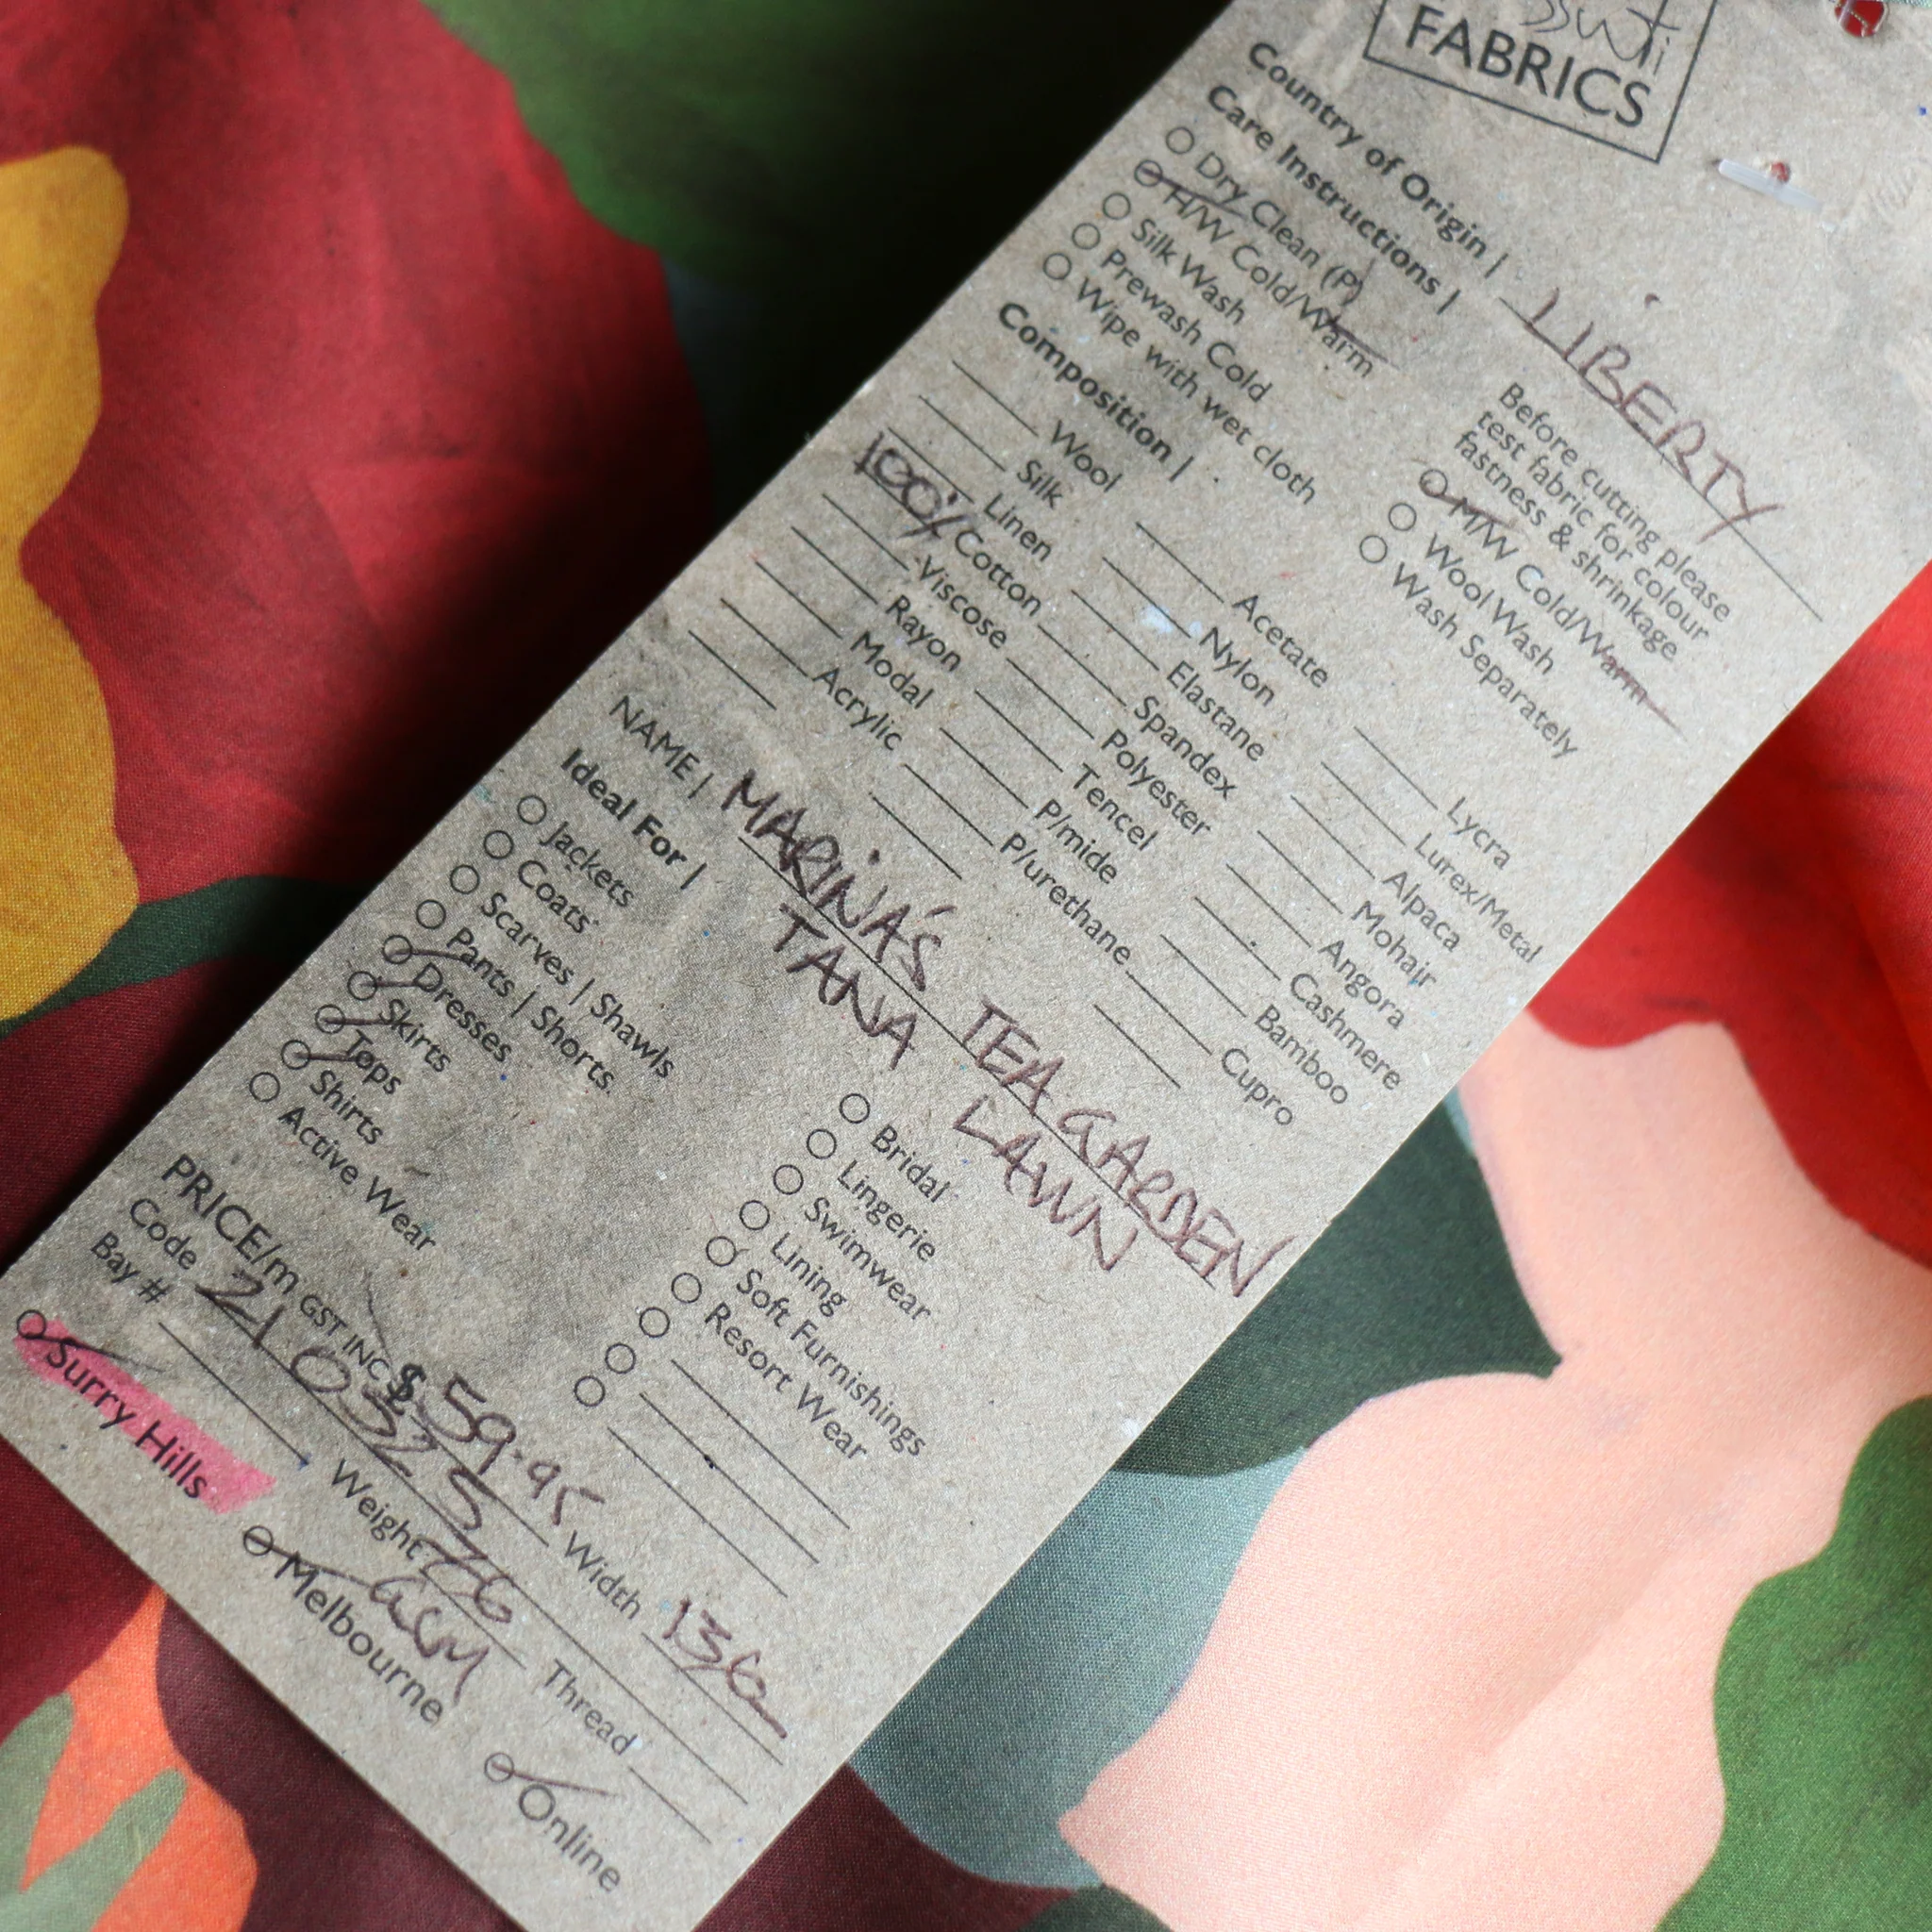 FABRICS
Country of Origin | LIBERTY
Care Instructions |
Before cutting please
test fabric for colour
fastness & shrinkage
Dry Clean (P)
H/W Cold/Warm
Silk Wash
Prewash Cold
Wipe with wet cloth
M/W Cold/Warm
Wool Wash
Wash Separately
Composition |
Wool
Silk
Linen
100% Cotton
Viscose
Rayon
Modal
Acrylic
Acetate
Nylon
Elastane
Spandex
Polyester
Tencel
P/mide
P/urethane
Lycra
Lurex/Metal
Alpaca
Mohair
Angora
Cashmere
Bamboo
Cupro
NAME | MARINA'S TEA GARDEN
TANA LAWN
Ideal For |
Jackets
Coats
Scarves | Shawls
Pants | Shorts
Dresses
Skirts
Tops
Shirts
Active Wear
Bridal
Lingerie
Swimwear
Lining
Soft Furnishings
Resort Wear
PRICE/m GST INC $59.95 Width 136
Code 210325 Weight 76 GSM Thread
Bay #
Surry Hills
Melbourne
Online